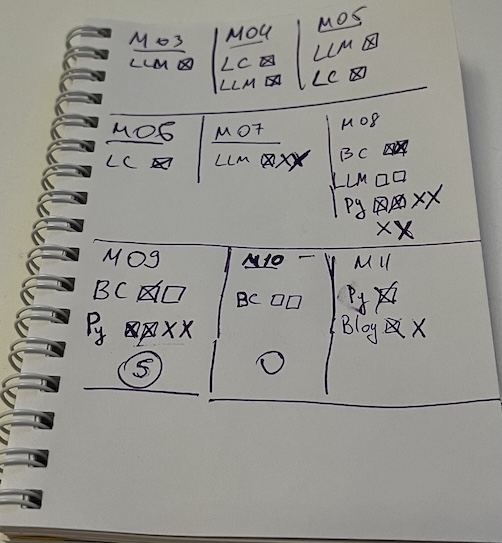 M03
LLM ☒
M04
LC ☒
LLM ☒
M05
LLM ☒
LC ☒
M06
LC ☒
M07
LLM ☒XX
M08
BC ☒☒
LLM ☐☐
Py ☒☒ XX
XX
M09
BC ☒☐
Py ☒☒ XX
5
M10 –
BC ☐☐
O
M11
Py ☒
Blog ☒ X